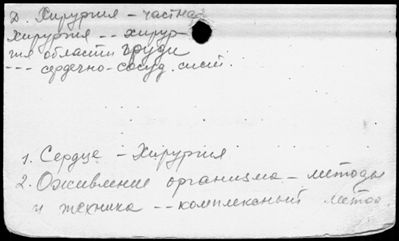 Д. Хирургия – частная
хирургия -- хирур-
гия области груди
--- сердечно-сосуд. сист.
1. Сердце – Хирургия
2. Оживление организма – методы
и техника -- комплексный метод